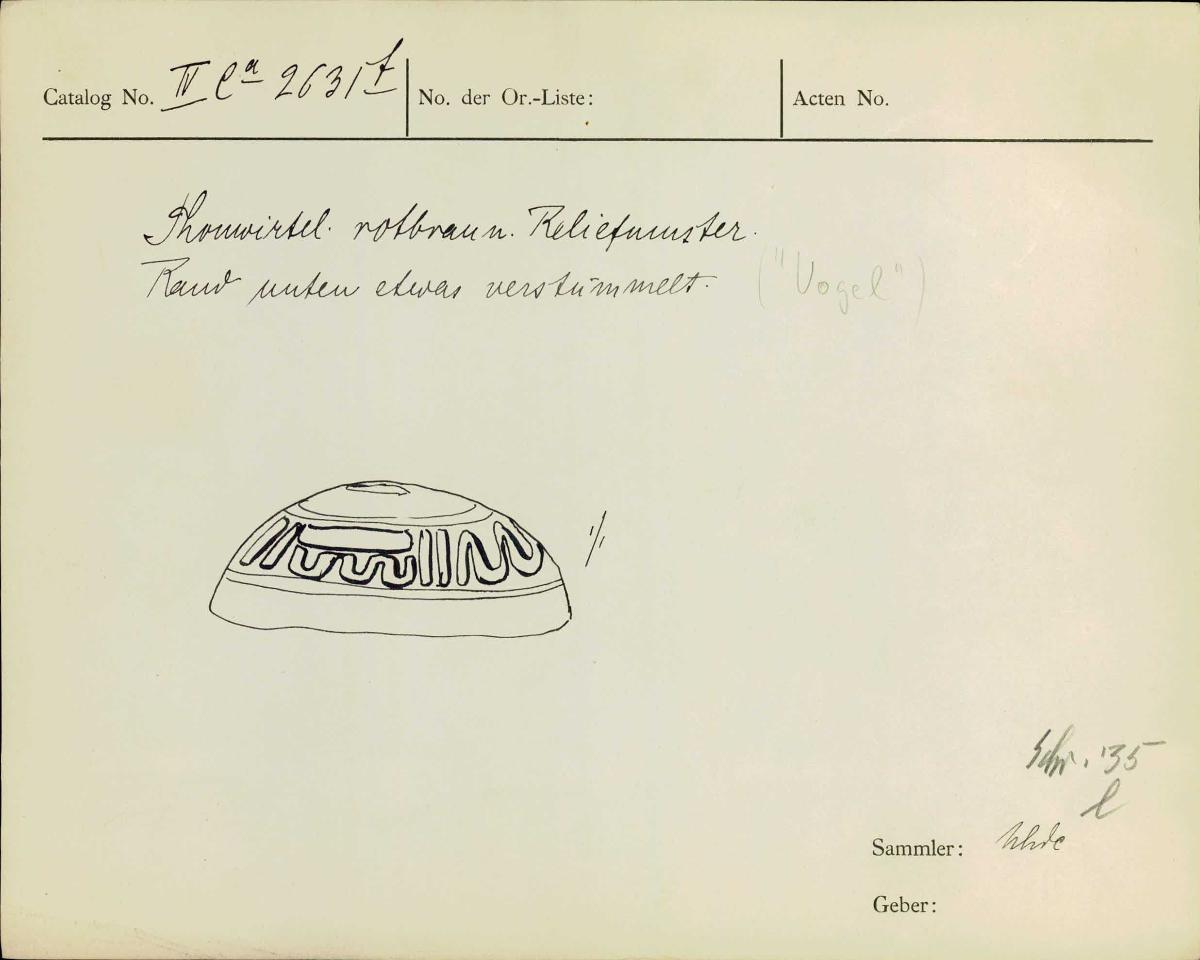 Catalog No. IV Ca 2631 f
No. der Or.-Liste:
Acten No.
Thonwirtel. rotbraun. Reliefmuster.
Rand unten etwas verstümmelt. ("Vogel")
1/1
Schr. '35
l
Sammler: Uhde
Geber: